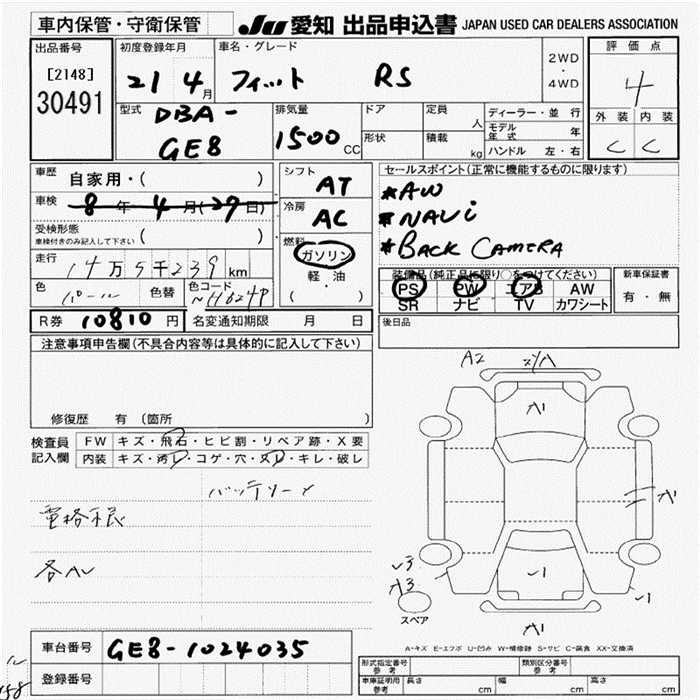 車内保管・守衛保管
JU 愛知 出品申込書 JAPAN USED CAR DEALERS ASSOCIATION
出品番号
[2148]
30491
初度登録年月
21 4 月
車名・グレード
フィット RS
2WD
・
4WD
評価点
4
外装 内装
C C
型式
DBA-
GE8
排気量
1500 CC
ドア
形状
定員 人
積載 kg
ディーラー・並行
モデル年式 年
ハンドル 左・右
車歴
自家用・( )
車検
8 年 4 月(29日)
受検形態
車検付きのみ記入して下さい ( )
走行
14万5千239 km
色
色替
色コード
R券 10810 円
名変通知期限 月 日
シフト
AT
冷房
AC
燃料
ガソリン
軽・油
( )
セールスポイント(正常に機能するものに限ります)
*AW
*NAVi
*BACK CAMERA
装備品(純正品に限り○をつけてください)
PS PW エアB AW
SR ナビ TV カワシート
新車保証書
有・無
後日品
注意事項申告欄(不具合内容等は具体的に記入して下さい)
修復歴 有 (箇所 )
検査員
記入欄
FW キズ・飛石・ヒビ割・リペア跡・X要
内装 キズ・汚レ・コゲ・穴・スレ・キレ・破レ
A2
A1
A1
スペア
A1
A-キズ E-エクボ U-凹み W-補修跡 S-サビ C-腐食 XX-交換済
車台番号 GE8-1024035
登録番号
形式指定番号
参考
類別区分番号
参考
車庫証明用
参考
長さ cm 幅 cm 高さ cm